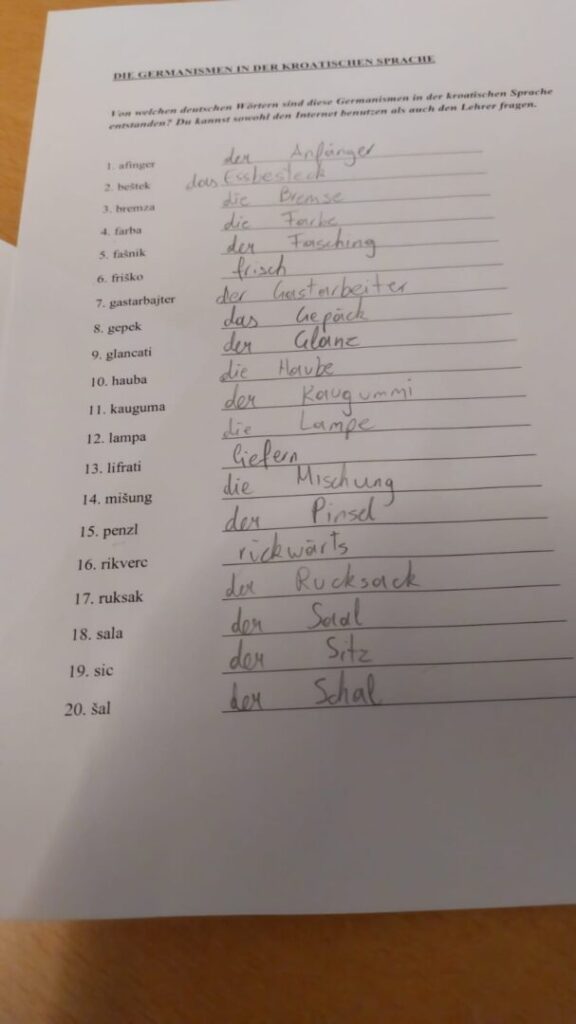 DIE GERMANISMEN IN DER KROATISCHEN SPRACHE
Von welchen deutschen Wörtern sind diese Germanismen in der kroatischen Sprache
entstanden? Du kannst sowohl den Internet benutzen als auch den Lehrer fragen.
1. afinger der Anfänger
2. beštek das Essbesteck
3. bremza die Bremse
4. farba die Farbe
5. fašnik der Fasching
6. friško frisch
7. gastarbajter der Gastarbeiter
8. gepek das Gepäck
9. glancati der Glanz
10. hauba die Haube
11. kauguma der Kaugummi
12. lampa die Lampe
13. lifrati liefern
14. mišung die Mischung
15. penzl der Pinsel
16. rikverc rückwärts
17. ruksak der Rucksack
18. sala der Saal
19. sic der Sitz
20. šal der Schal